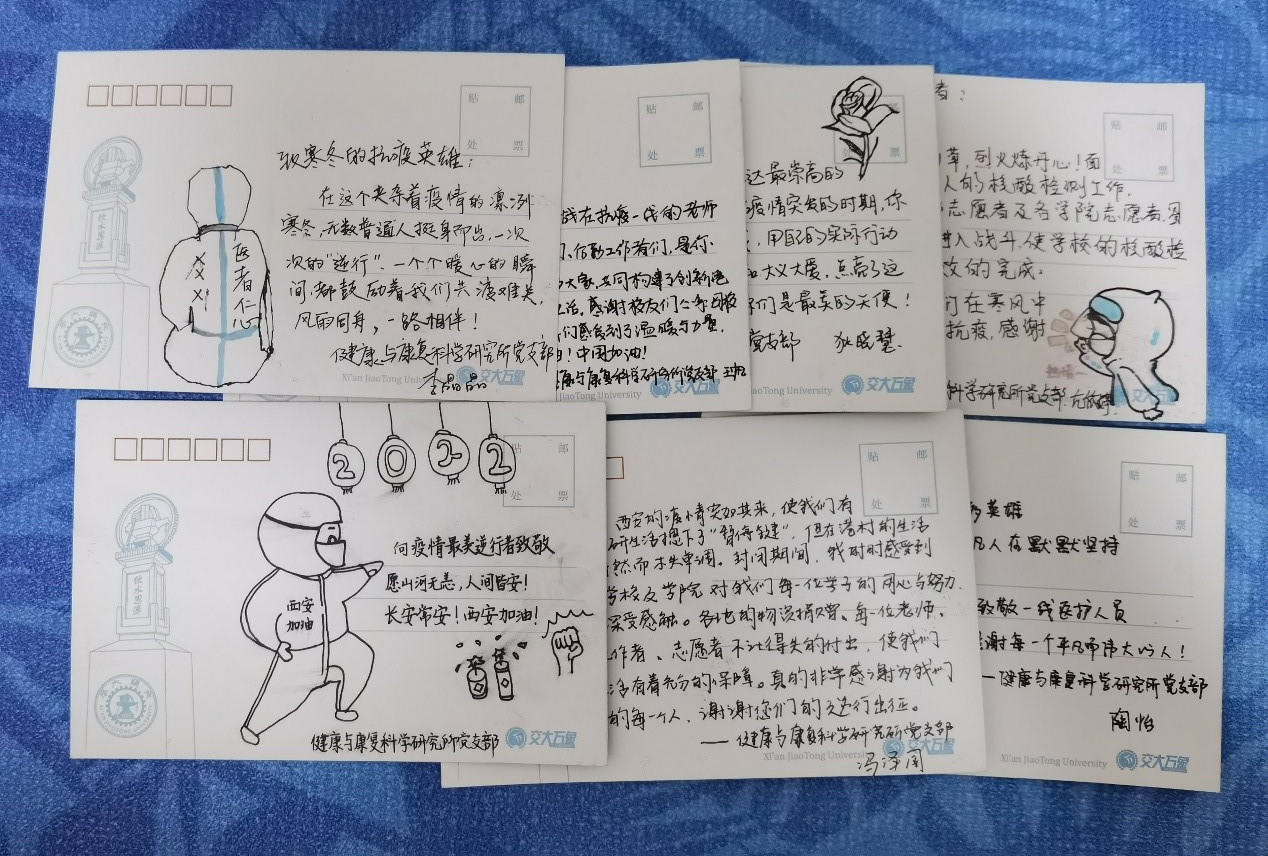 贴 邮
处 票
致寒冬的抗疫英雄：
在这个夹杂着疫情的凛冽
寒冬，无数普通人挺身而出，一次
次的“逆行”，一个个暖心的瞬
间，都鼓励着我们共渡难关，
风雨同舟，一路相伴！
健康与康复科学研究所党支部
李晶晶
医者仁心
饮水思源
Xi'an JiaoTong University
交大百盛
贴 邮
处 票
战在抗疫一代的老师
工作者们，是你
大家，共同构建了创新港
生活，感谢校友们
们感受到了温暖与力量，
！中国加油！
康与康复科学研究所党支部
JiaoTong University
贴 邮
处 票
达最崇高的
疫情突发的时期，你
，用自己的实际行动
和大义大爱，点亮了这
你们是最美的天使！
党支部 狄晓慧
者：
贴 邮
处 票
草，烈火炼丹心！面
人的核酸检测工作，
志愿者及各学院志愿者，
进入战斗，使学校的核酸检
效的完成。
们在寒风中
抗疫，感谢
科学研究所党支部
2022
贴 邮
处 票
向疫情最美逆行者致敬
愿山河无恙，人间皆安！
长安常安！西安加油！
西安
加油
健康与康复科学研究所党支部
饮水思源
贴 邮
处 票
西安的疫情突如其来，使我们有
研生活摁下了“暂停键”，但在港村的生活
然而未失单调。封闭期间，我时时感受到
学校及学院对我们每一位学子的用心与努力，
深受感触。各地的物资捐赠、每一位老师、
工作者、志愿者不计得失的付出，使我们
活有着充分的保障。真的非常感谢为我们
的每一个人，谢谢您们的逆行出征。
——健康与康复科学研究所党支部
冯泽周
Xi'an JiaoTong University
贴 邮
处 票
英雄
凡人在默默坚持
致敬一线医护人员
感谢每一个平凡而伟大的人！
—健康与康复科学研究所党支部
陶怡
Xi'an JiaoTong University